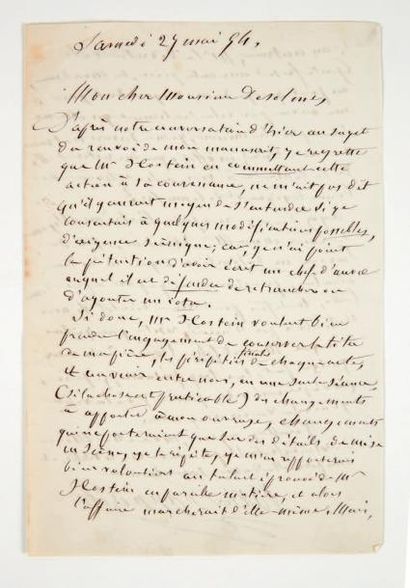 Samedi 27 mai 54.
Mon cher Monsieur Desolmes
D'après notre conversation d'hier au sujet
du renvoi de mon manuscrit, je regrette
que Mr Hostein en commettant cette
action à sa convenance, ne m'ait pas dit
qu'il y aurait moyen de s'entendre si je
consentais à quelques modifications possibles,
d'exigence scénique; car, je n'ai point
la prétention d'avoir écrit un chef d'œuvre
auquel il est défendu de retrancher ou
d'ajouter un iota.
Si donc, Mr Hostein voulait bien
prendre l'engagement de conserver le titre
de ma pièce, les péripéties finales de chaque acte,
et convenir entre nous, en une seule séance
(si la chose est praticable) des changements
à apporter à mon ouvrage, changements
qui ne porteraient que sur des détails de mise
en scène, je le répète, je m'en rapporterais
bien volontiers au talent éprouvé de Mr
Hostein en pareille matière, et alors
l'affaire marcherait d'elle-même. Mais,